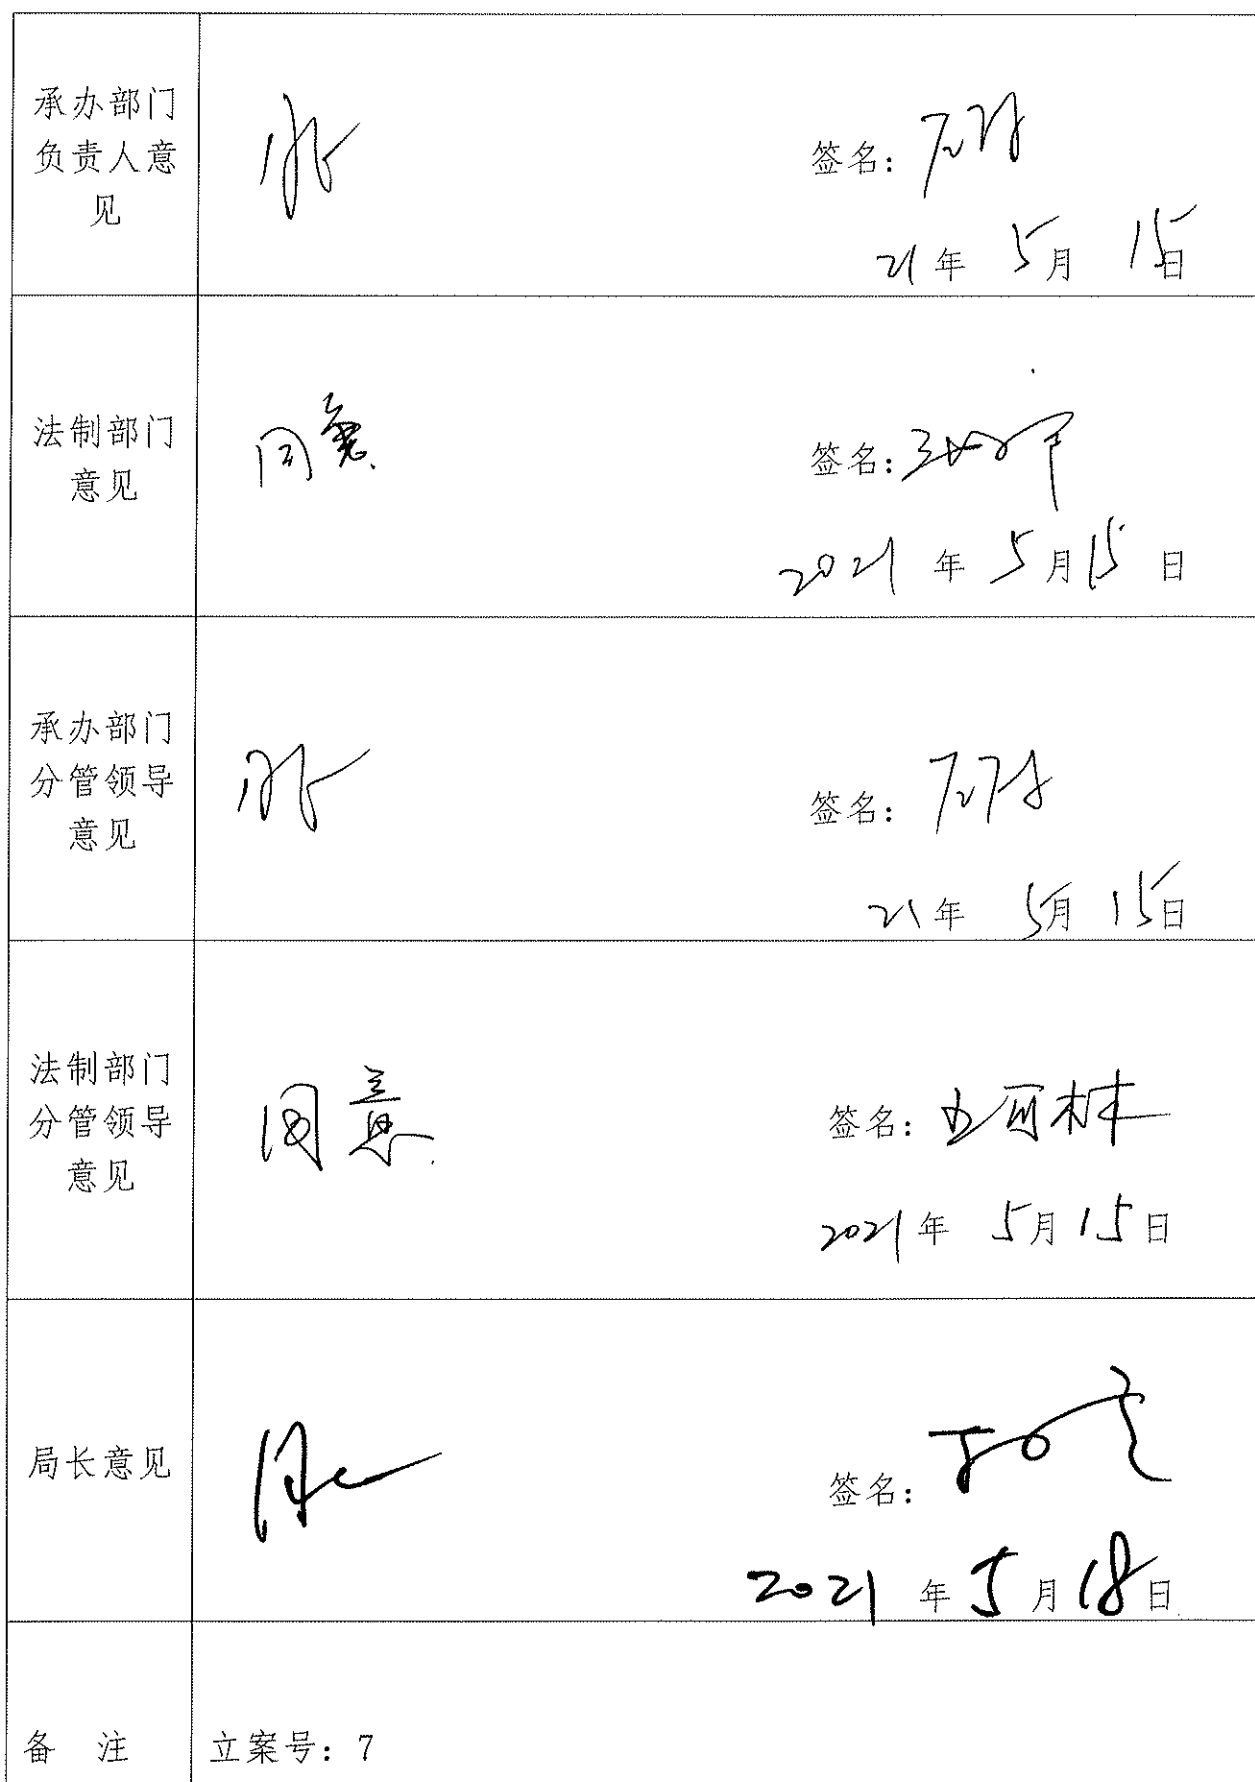 承办部门
负责人意
见
同意
签名:
21年 5月 15日
法制部门
意见
同意
签名:
2021年 5月15日
承办部门
分管领导
意见
同意
签名:
21年 5月 15日
法制部门
分管领导
意见
同意
签名:
2021年 5月15日
局长意见
同意
签名:
2021年5月18日
备 注
立案号: 7